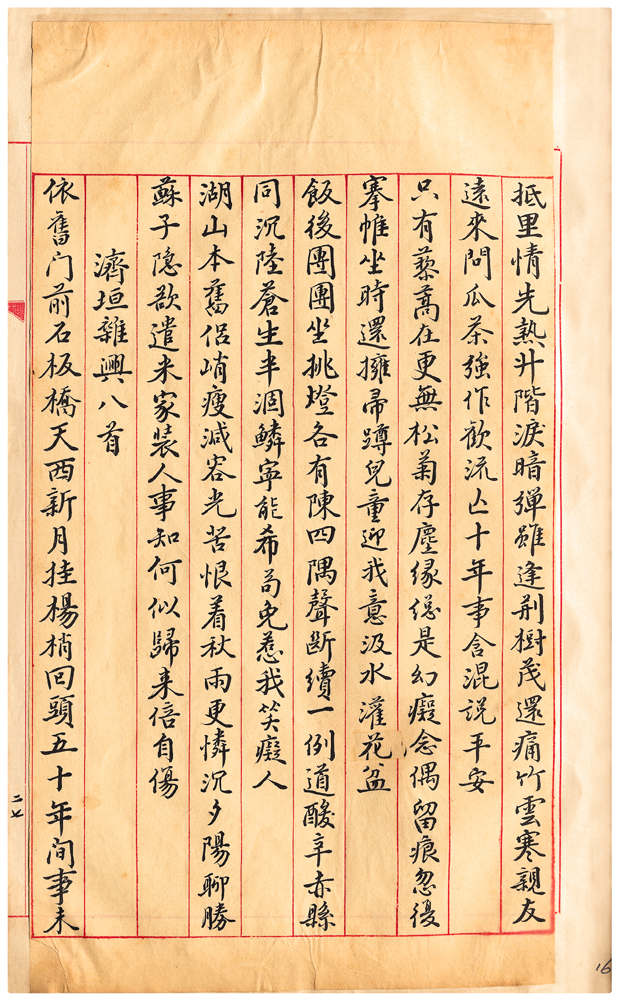 抵里情先熱升階淚暗彈雖逢荆樹茂還痛竹雲寒親友
遠來問瓜茶強作歡流亾十年事含混説平安
只有藜蒿在更無松菊存塵緣總是幻癡念偶留痕忽復
搴帷坐時還擁帚蹲兒童迎我意汲水灌花盆
飯後團團坐挑燈各有陳四隅聲斷續一例道酸辛赤縣
同沉陸蒼生半涸鱗寧能希苟免惹我笑癡人
湖山本舊侶峭瘦減容光苦恨着秋雨更憐沉夕陽聊勝
蘇子隱欲遣米家裝人事知何似歸来倍自傷
濟垣雜興八首
依舊门前石板橋天西新月挂楊梢回頭五十年间事未
二七
16